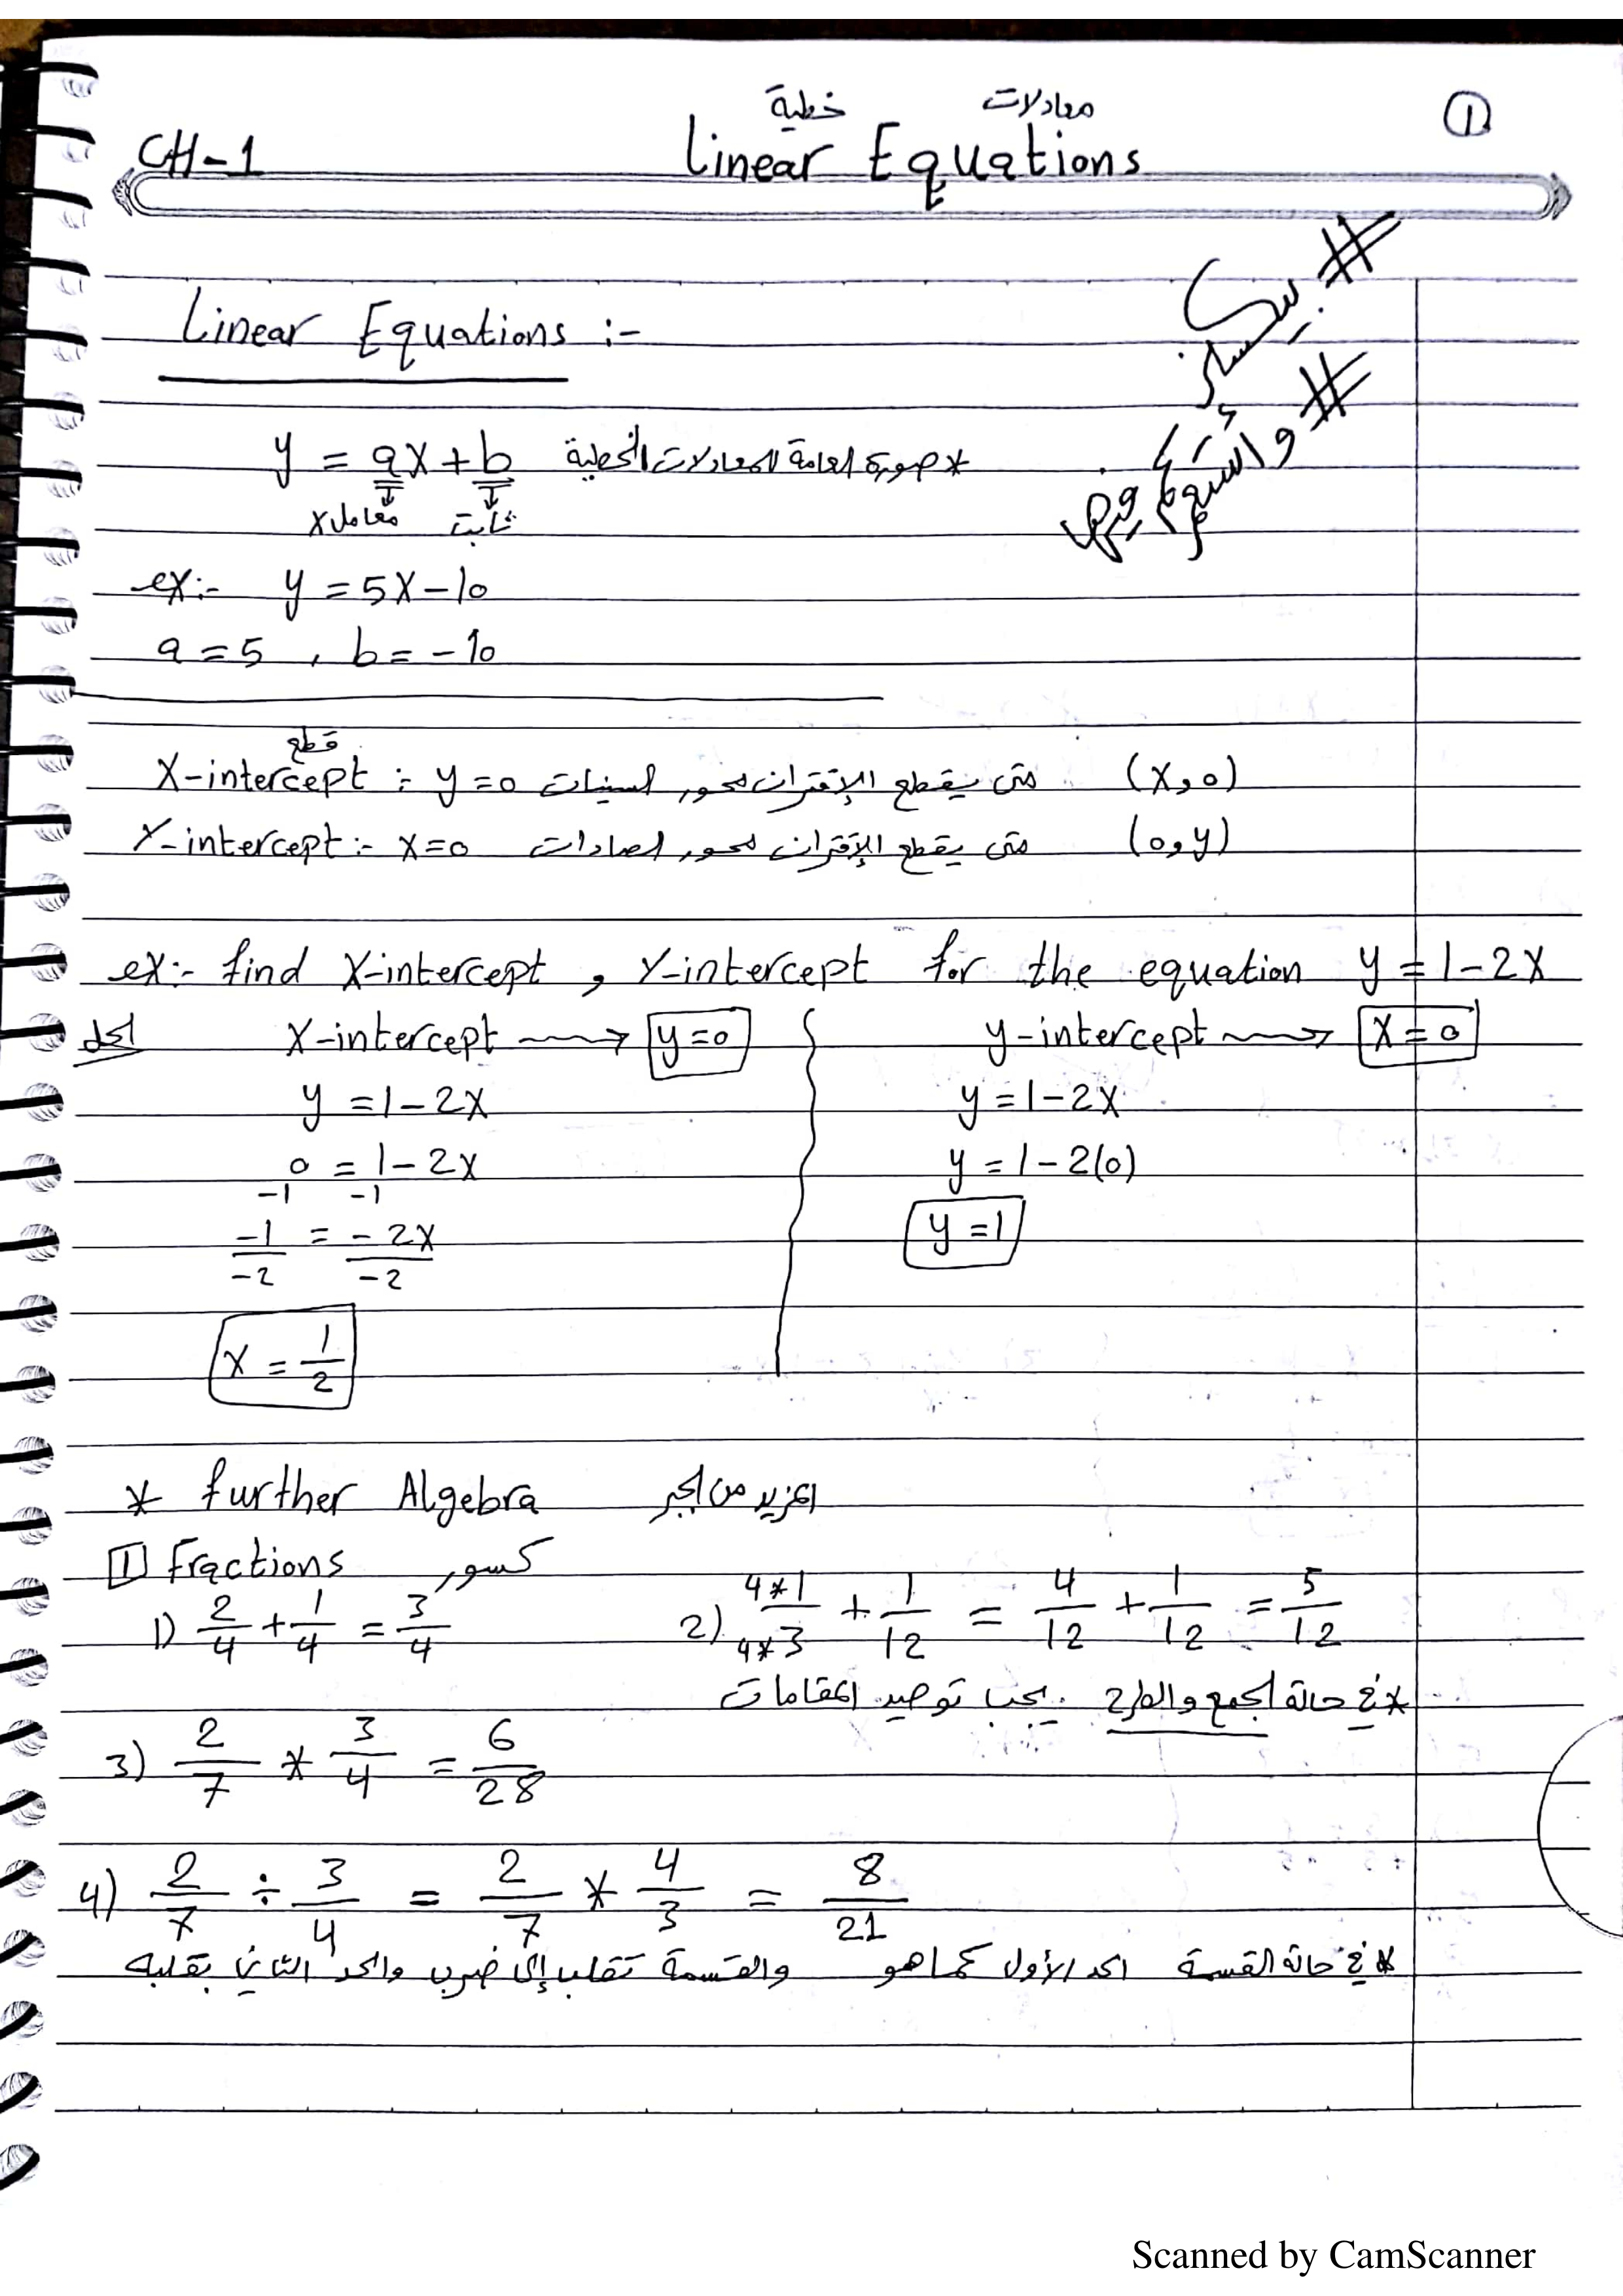 ①
معادلات خطية
CH-1 Linear Equations
Linear Equations :-
y = ax + b * صورة العامة للمعادلات الخطية
معامل x ثابت
ex:- y = 5x - 10
a = 5 , b = -10
قطع
X-intercept :- y=0 متى يقطع الإقتران محور السينات (x,0)
Y-intercept :- x=0 متى يقطع الإقتران محور الصادات (0,y)
ex:- find X-intercept , Y-intercept for the equation y = 1-2x
الحل X-intercept → y=0 y-intercept → x=0
y = 1-2x y = 1-2x
0 = 1-2x y = 1-2(0)
-1 -1
-1/-2 = -2x/-2 y = 1
x = 1/2
* further Algebra المزيد من الجبر
1 Fractions كسور
1) 2/4 + 1/4 = 3/4 2) 4*1/4*3 + 1/12 = 4/12 + 1/12 = 5/12
* في حالة الجمع والطرح يجب توحيد المقامات
3) 2/7 * 3/4 = 6/28
4) 2/7 ÷ 3/4 = 2/7 * 4/3 = 8/21
* في حالة القسمة الحد الأول كما هو والقسمة تقلب إلى ضرب والحد الثاني بقلبه
Scanned by CamScanner